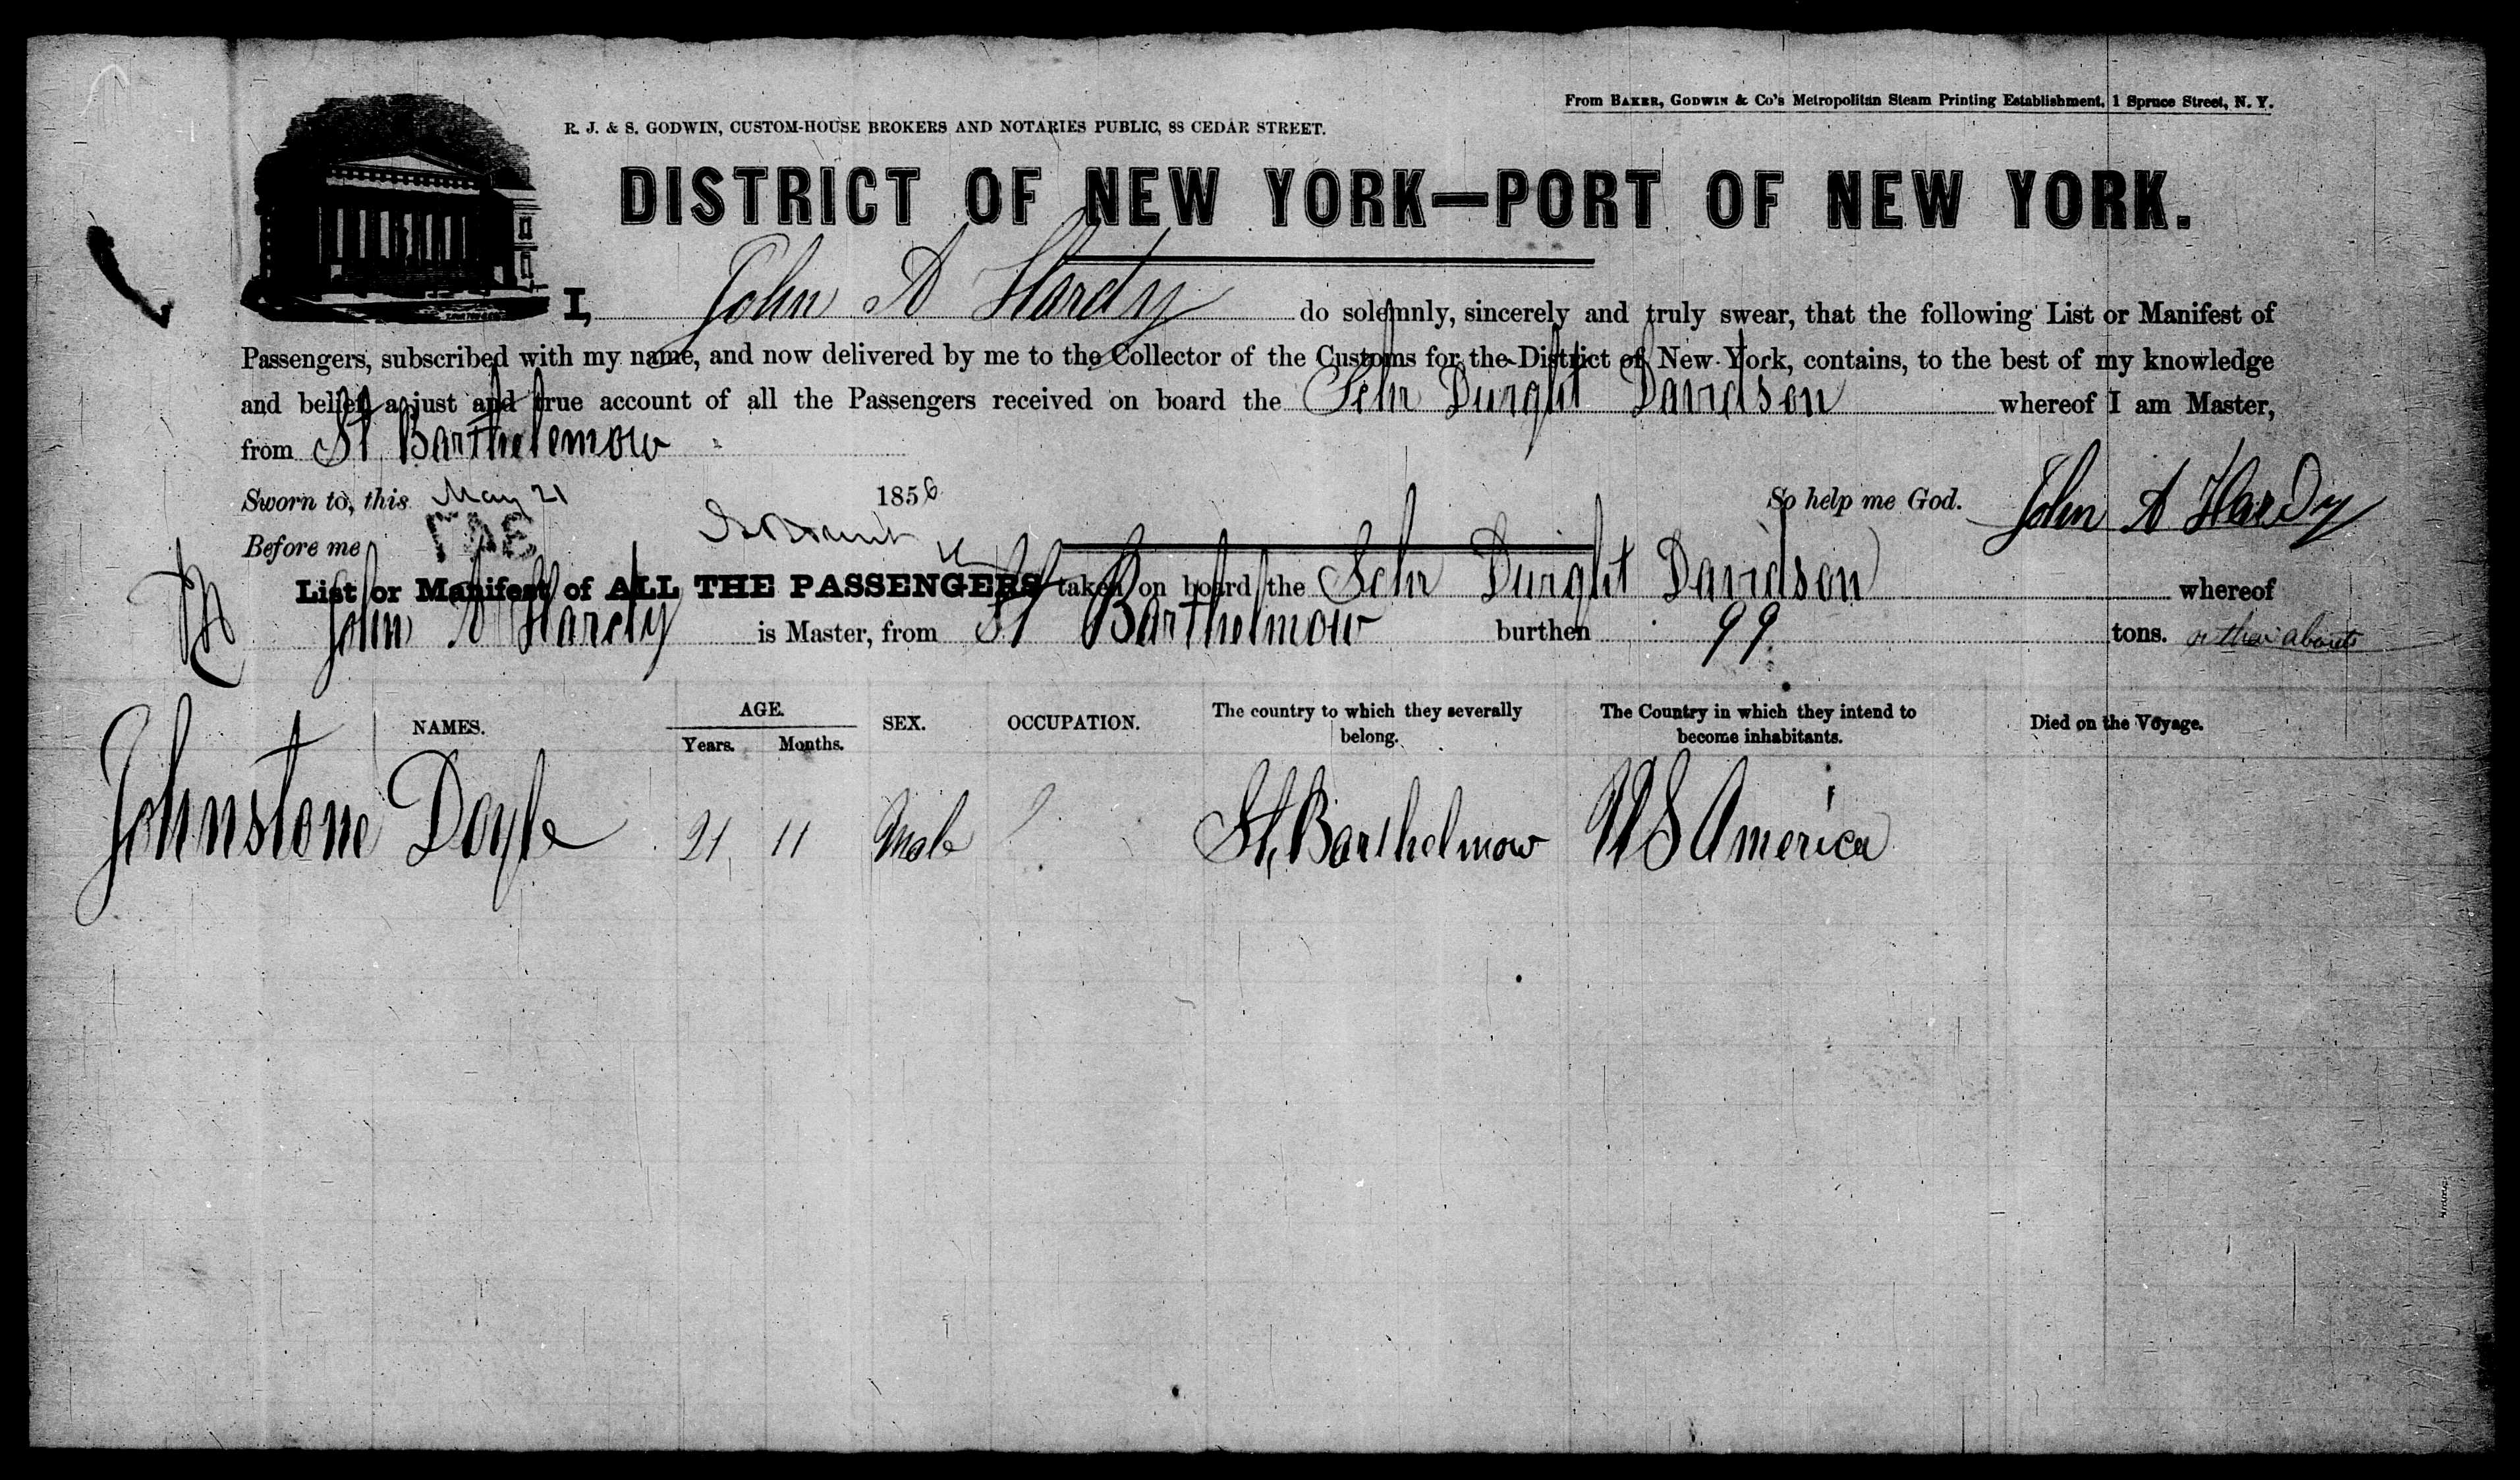 From BAKER, GODWIN & Co's Metropolitan Steam Printing Establishment, 1 Spruce Street, N. Y.
R. J. & S. GODWIN, CUSTOM-HOUSE BROKERS AND NOTARIES PUBLIC, 88 CEDAR STREET.
DISTRICT OF NEW YORK—PORT OF NEW YORK.
I, John A Hardy do solemnly, sincerely and truly swear, that the following List or Manifest of
Passengers, subscribed with my name, and now delivered by me to the Collector of the Customs for the District of New York, contains, to the best of my knowledge
and belief, a just and true account of all the Passengers received on board the Schr Dwight Davidson whereof I am Master,
from St Barthelemow
Sworn to, this May 21 1856 So help me God. John A Hardy
Before me
List or Manifest of ALL THE PASSENGERS taken on board the Schr Dwight Davidson whereof
John A Hardy is Master, from St Barthelmow burthen 99 tons. or thereabouts
NAMES. AGE. Years. Months. SEX. OCCUPATION. The country to which they severally belong. The Country in which they intend to become inhabitants. Died on the Voyage.
Johnstone Doyle 21 11 Male St, Barthelmow US America